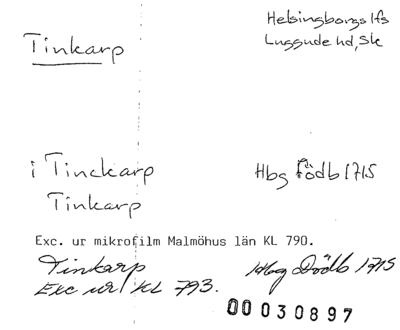 Tinkarp
Helsingborgs lfs
Luggude hd, Sk
i Tinckarp
Hbg födb 1715
Tinkarp
Exc. ur mikrofilm Malmöhus län KL 790.
Tinkarp
Hbg Dödb 1715
Exc ur KL 793.
00030897